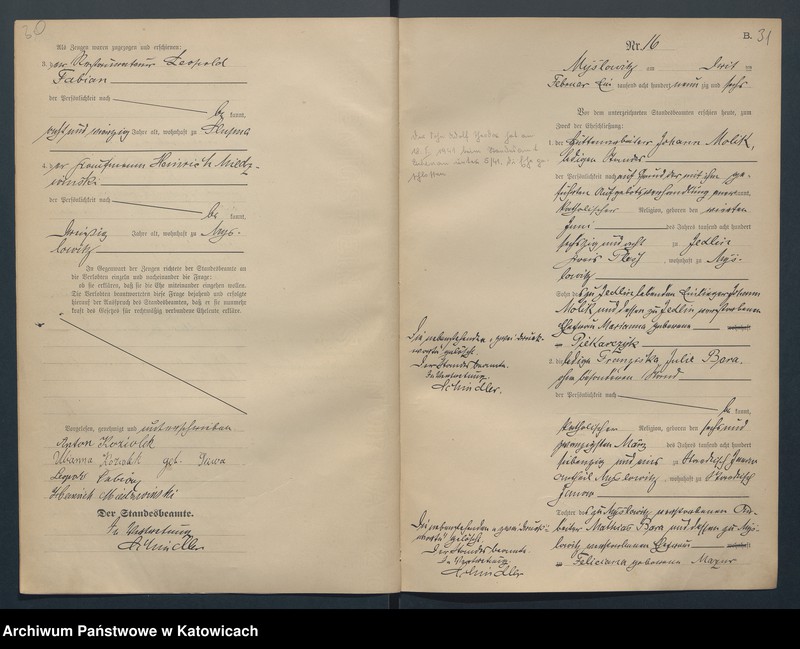 30
Als Zeugen waren zugezogen und erschienen:
3. der Restaurateur Leopold
Fabian
der Persönlichkeit nach
be kannt,
acht und vierzig Jahre alt, wohnhaft zu
4. der Kaufmann Heinrich
der Persönlichkeit nach
be kannt,
dreißig Jahre alt, wohnhaft zu Mys-
lowitz
In Gegenwart der Zeugen richtete der Standesbeamte an
die Verlobten einzeln und nacheinander die Frage:
ob sie erklären, daß sie die Ehe miteinander eingehen wollen.
Die Verlobten beantworteten diese Frage bejahend und erfolgte
hierauf der Ausspruch des Standesbeamten, daß er sie nunmehr
kraft des Gesetzes für rechtmäßig verbundene Eheleute erkläre.
Vorgelesen, genehmigt und unterschrieben
Anton Koziolek
Koziolek geb.
Leopold Fabian
Heinrich
Der Standesbeamte.
In Vertretung
Schindler
B. 31
Nr. 16
Myslowitz am drei ten
Februar Ein tausend acht hundert neun zig und sechs
Vor dem unterzeichneten Standesbeamten erschien heute, zum
Zweck der Eheschließung:
1. der Hüttenarbeiter Johann Molik,
ledigen Standes
der Persönlichkeit nach auf Grund der mit ihm ge-
führten Aufgebotsverhandlung aner kannt,
katholischer Religion, geboren den vierten
Juni des Jahres tausend acht hundert
sechszig und acht zu Jedlin
Kreis Pleß, wohnhaft zu Mys-
lowitz
Sohn des zu Jedlin lebenden Einliegers Johann
Molik und dessen zu Jedlin verstorbenen
Ehefrau Marianna geborene wohnhaft
zu Piekarczyk
2. die ledige Franziska Julie Bara,
ohne besonderen Stand
der Persönlichkeit nach
be kannt,
katholischer Religion, geboren den sechs und
zwanzigsten März des Jahres tausend acht hundert
siebenzig und eins zu Städtisch Janow
Antheil Myslowitz, wohnhaft zu Städtisch
Janow
Tochter des zu Myslowitz verstorbenen Ar-
beiter Mathias Bara und dessen zu Mys-
lowitz verstorbenen Ehefrau wohnhaft
zu Feliciana geborene Mazur
Die nebenstehenden zwei Druck-
worte gelöscht.
Der Standesbeamte.
In Vertretung
Schindler.
Die nebenstehenden zwei Druck-
worte gelöscht.
Der Standesbeamte.
In Vertretung
Schindler
Archiwum Państwowe w Katowicach